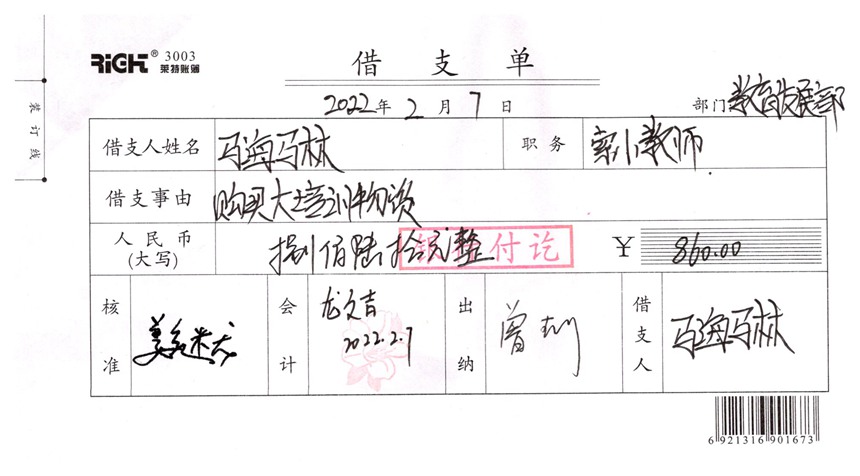 RiGHT® 3003
莱特账簿
借支单
2022年2月7日
部门 教育发展部
装订线
借支人姓名 马海马林 职务 家小教师
借支事由 购买大培训物资
人民币(大写) 捌佰陆拾元整 付讫 ¥ 860.00
核准 会计 龙文吉 2022.2.7 出纳 曾 借支人 马海马林
6 921316 901673